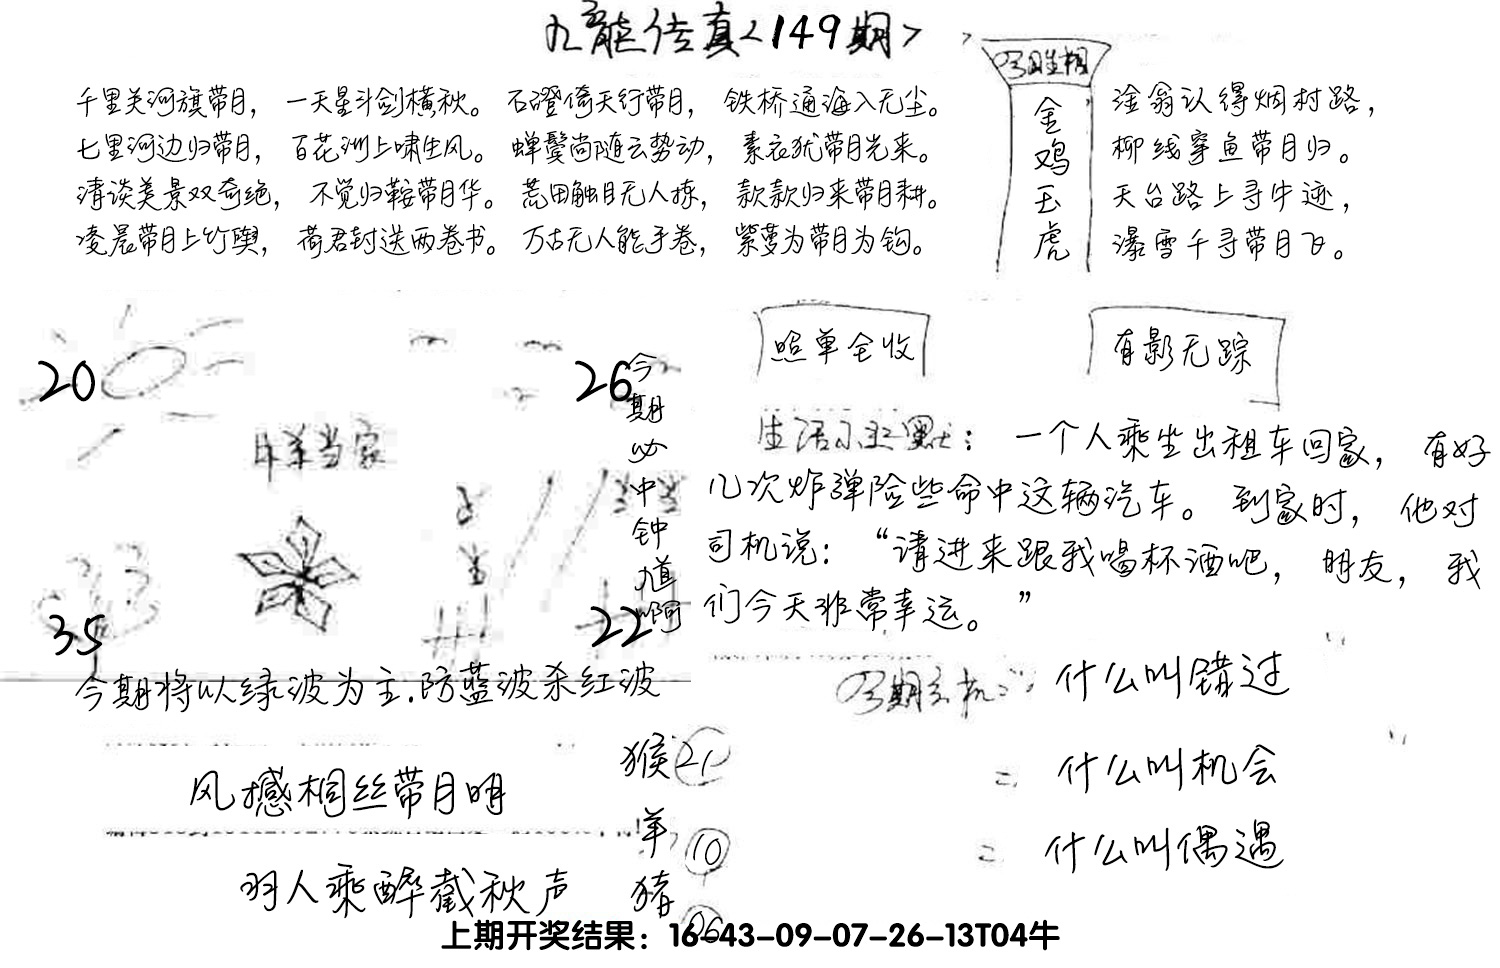 九龙传真<149期>
千里关河旗带月，一天星斗剑横秋。石磴倚天行带月，铁桥通海入无尘。
七里河边归带月，百花洲上啸生风。蝉鬓尚随云势动，素衣犹带月光来。
清谈美景双奇绝，不觉归鞍带月华。荒田触目无人拣，款款归来带月耕。
凌晨带月上竹舆，荷君封送两卷书。万古无人能手卷，紫萝为带月为钩。
金鸡玉虎
淦翁认得烟村路，
柳线穿鱼带月归。
天台路上寻牛迹，
瀑雪千寻带月飞。
20
26
35
22
羊当家
今期必中钟道啊
照单全收
有影无踪
生活小幽默：一个人乘坐出租车回家，有好
几次炸弹险些命中这辆汽车。到家时，他对
司机说：“请进来跟我喝杯酒吧，朋友，我
们今天非常幸运。”
今期将以绿波为主.防蓝波杀红波
今期玄机：什么叫错过
= 什么叫机会
= 什么叫偶遇
风撼桐丝带月明
羽人乘醉截秋声
猴 21
羊 10
猪 06
上期开奖结果：16-43-09-07-26-13T04牛